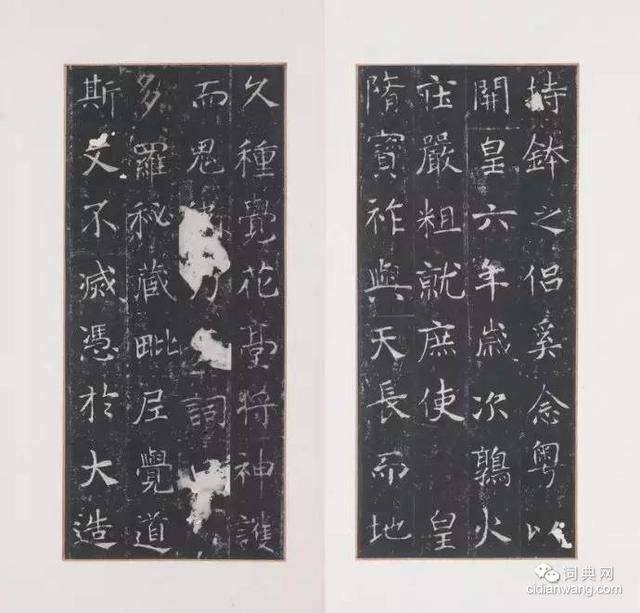 持鉢之侶奚念粵以
開皇六年歲次鶉火
莊嚴粗就庶使 皇
隋寶祚與天長而地
久種覺花臺將神護
而鬼 乃 詞
多羅秘藏毗尼覺道
斯文不滅憑於大造
词典网
cidianwang.com